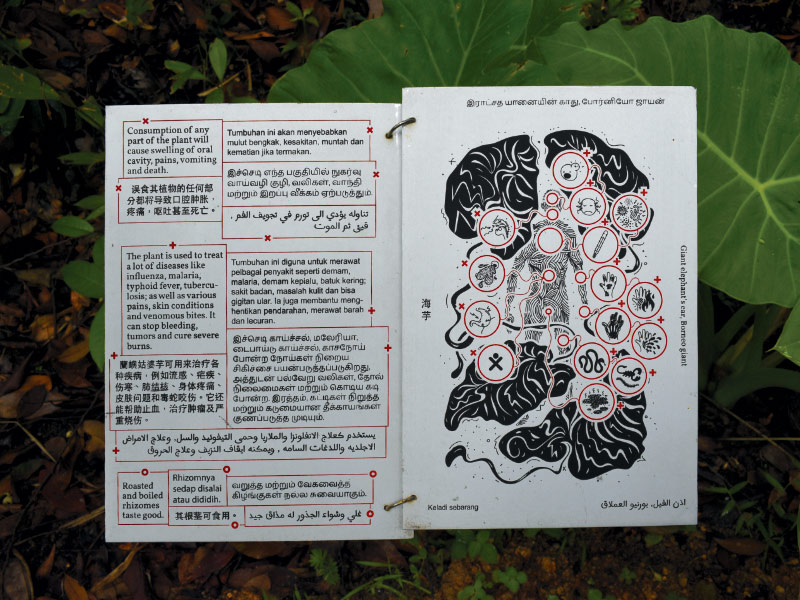 Consumption of any
part of the plant will
cause swelling of oral
cavity, pains, vomiting
and death.
Tumbuhan ini akan menyebabkan
mulut bengkak, kesakitan, muntah dan
kematian jika termakan.
இச்செடி எந்த பகுதியில் நுகர்வு
வாய்வழி குழி, வலிகள், வாந்தி
மற்றும் இறப்பு வீக்கம் ஏற்படுத்தும்.
误食其植物的任何部
分都将导致口腔肿胀,
疼痛，呕吐甚至死亡。
تناوله يؤدي الى تورم في تجويف الفم ,
ثم الموت
The plant is used to treat
a lot of diseases like
influenza, malaria,
typhoid fever, tubercu-
losis; as well as various
pains, skin conditions
and venomous bites. It
can stop bleeding,
tumors and cure severe
burns.
Tumbuhan ini diguna untuk merawat
pelbagai penyakit seperti demam,
malaria, demam kepialu, batuk kering;
sakit badan, masalah kulit dan bisa
gigitan ular. Ia juga membantu meng-
hentikan pendarahan, merawat barah
dan lecuran.
இச்செடி காய்ச்சல், மலேரியா,
டைபாய்டு காய்ச்சல், காசநோய்
போன்ற நோய்கள் நிறைய
சிகிச்சை பயன்படுத்தப்படுகிறது.
அத்துடன் பல்வேறு வலிகள், தோல்
நிலைமைகள் மற்றும் கொடிய கடி
போன்ற. இரத்தம், கட்டிகள் நிறுத்த
மற்றும் கடுமையான தீக்காயங்கள்
குணப்படுத்த முடியும்.
蘭嶼姑婆芋可用来治疗各
种疾病，例如流感、疟疾、
伤寒、肺结核、身体疼痛、
皮肤问题和毒蛇咬伤。它还
能帮助止血，治疗肿瘤及严
重烧伤。
يستخدم كعلاج الانفلونزا والملاريا وحمى التيفوئيد والسل, وعلاج الامراض
الاجلديه واللدغات السامه , ويمكنه ايقاف النزيف وعلاج الحروق
Roasted
and boiled
rhizomes
taste good.
Rhizomnya
sedap disalai
atau dididih.
வறுத்த மற்றும் வேகவைத்த
கிழங்குகள் நல்ல சுவையாகும்.
其根茎可食用。
غلي وشواء الجذور له مذاق جيد
இராட்சத யானையின் காது, போர்னியோ ஜாயன்
Giant elephant's ear, Borneo giant
海芋
Keladi sebarang
اذن الفيل، بورنيو العملاق